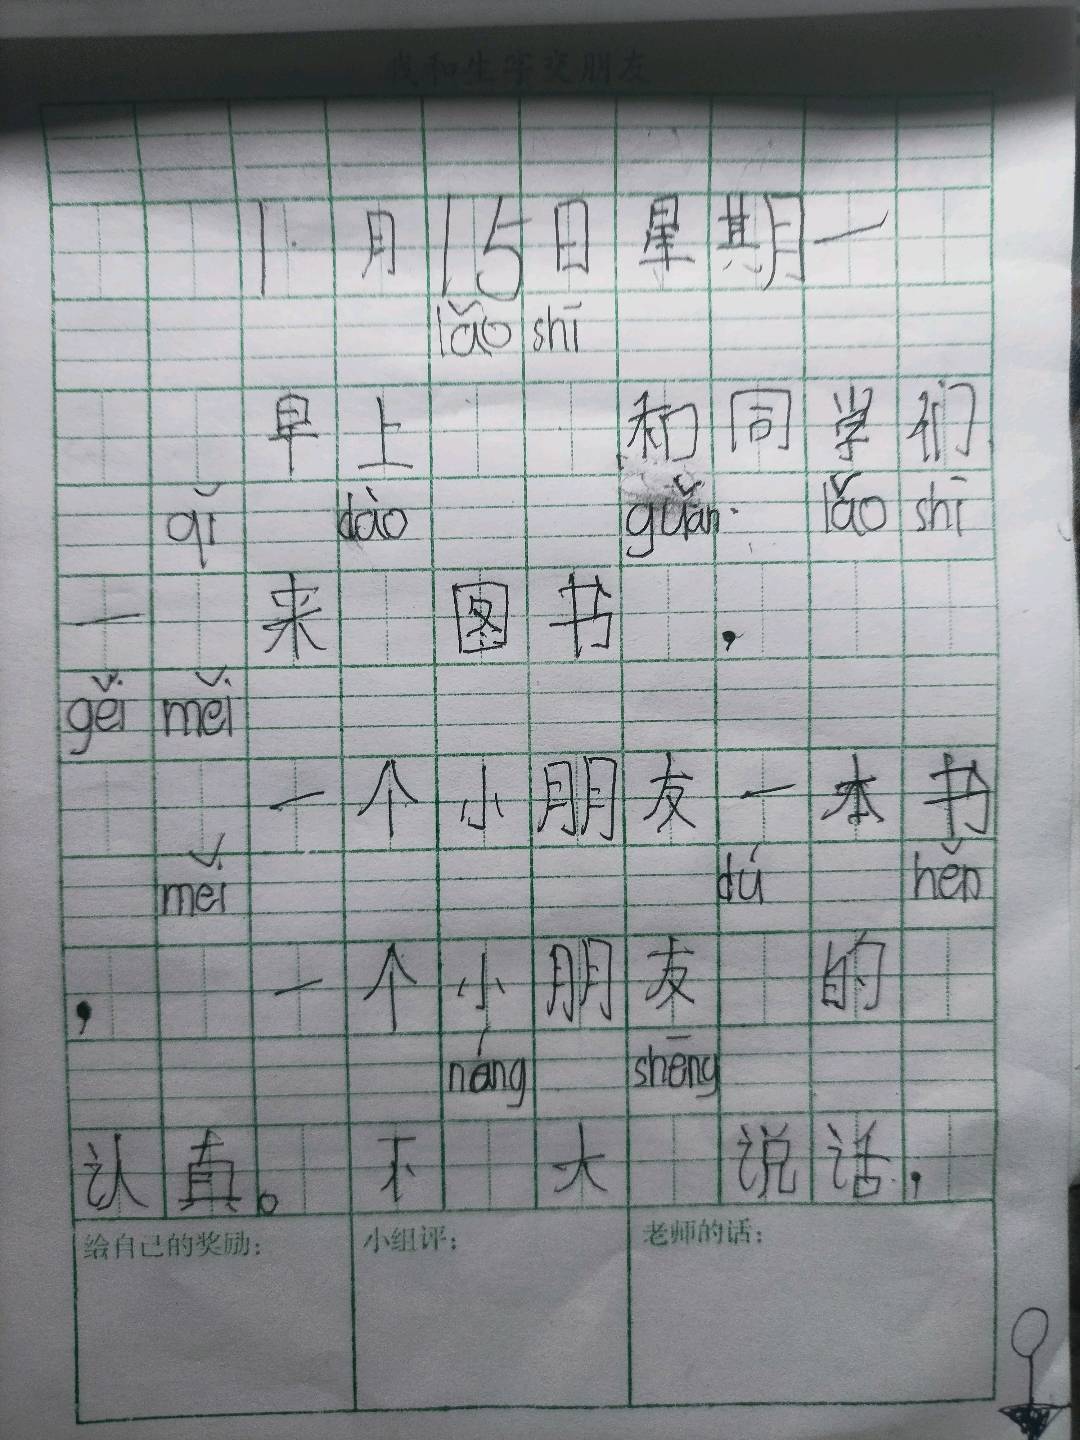 我和生字交朋友
1月15日星期一
lǎo shī
早上 和同学们
qǐ dào guǎn lǎo shī
一 来 图书 ，
gěi měi
一个小朋友一本书
měi dú hěn
， 一个小朋友 的
néng shēng
认真。不 大 说话，
给自己的奖励：
小组评：
老师的话：